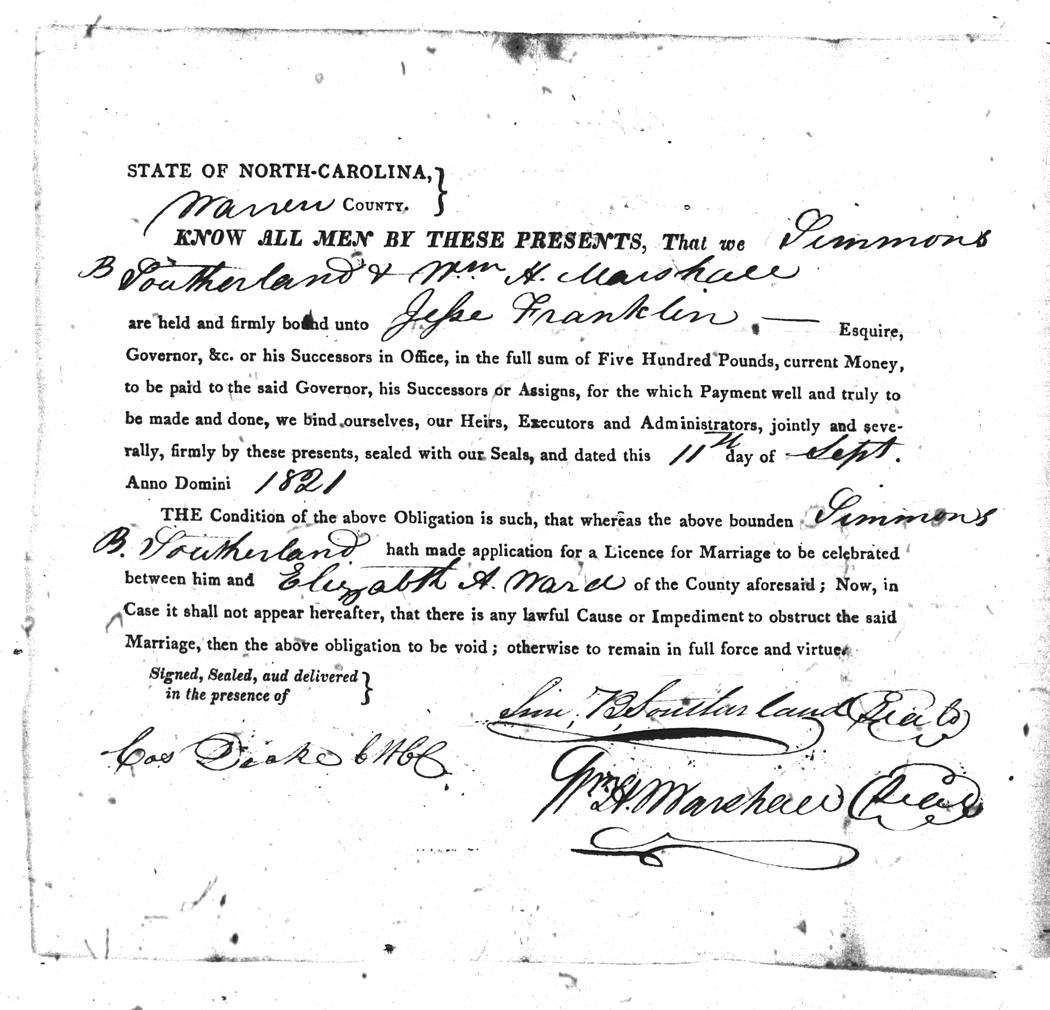 STATE OF NORTH-CAROLINA,
Warren COUNTY.
KNOW ALL MEN BY THESE PRESENTS, That we Simmons
B Southerland & Wm H. Marshall
are held and firmly bound unto Jesse Franklin — Esquire,
Governor, &c. or his Successors in Office, in the full sum of Five Hundred Pounds, current Money,
to be paid to the said Governor, his Successors or Assigns, for the which Payment well and truly to
be made and done, we bind ourselves, our Heirs, Executors and Administrators, jointly and seve-
rally, firmly by these presents, sealed with our Seals, and dated this 11th day of Sept.
Anno Domini 1821
THE Condition of the above Obligation is such, that whereas the above bounden Simmons
B. Southerland hath made application for a Licence for Marriage to be celebrated
between him and Elizabth A. Ward of the County aforesaid; Now, in
Case it shall not appear hereafter, that there is any lawful Cause or Impediment to obstruct the said
Marriage, then the above obligation to be void; otherwise to remain in full force and virtue.
Signed, Sealed, aud delivered
in the presence of
Sim, B Southerland (Seal)
Cas Drake CWCC
Wm H. Marshall (Seal)